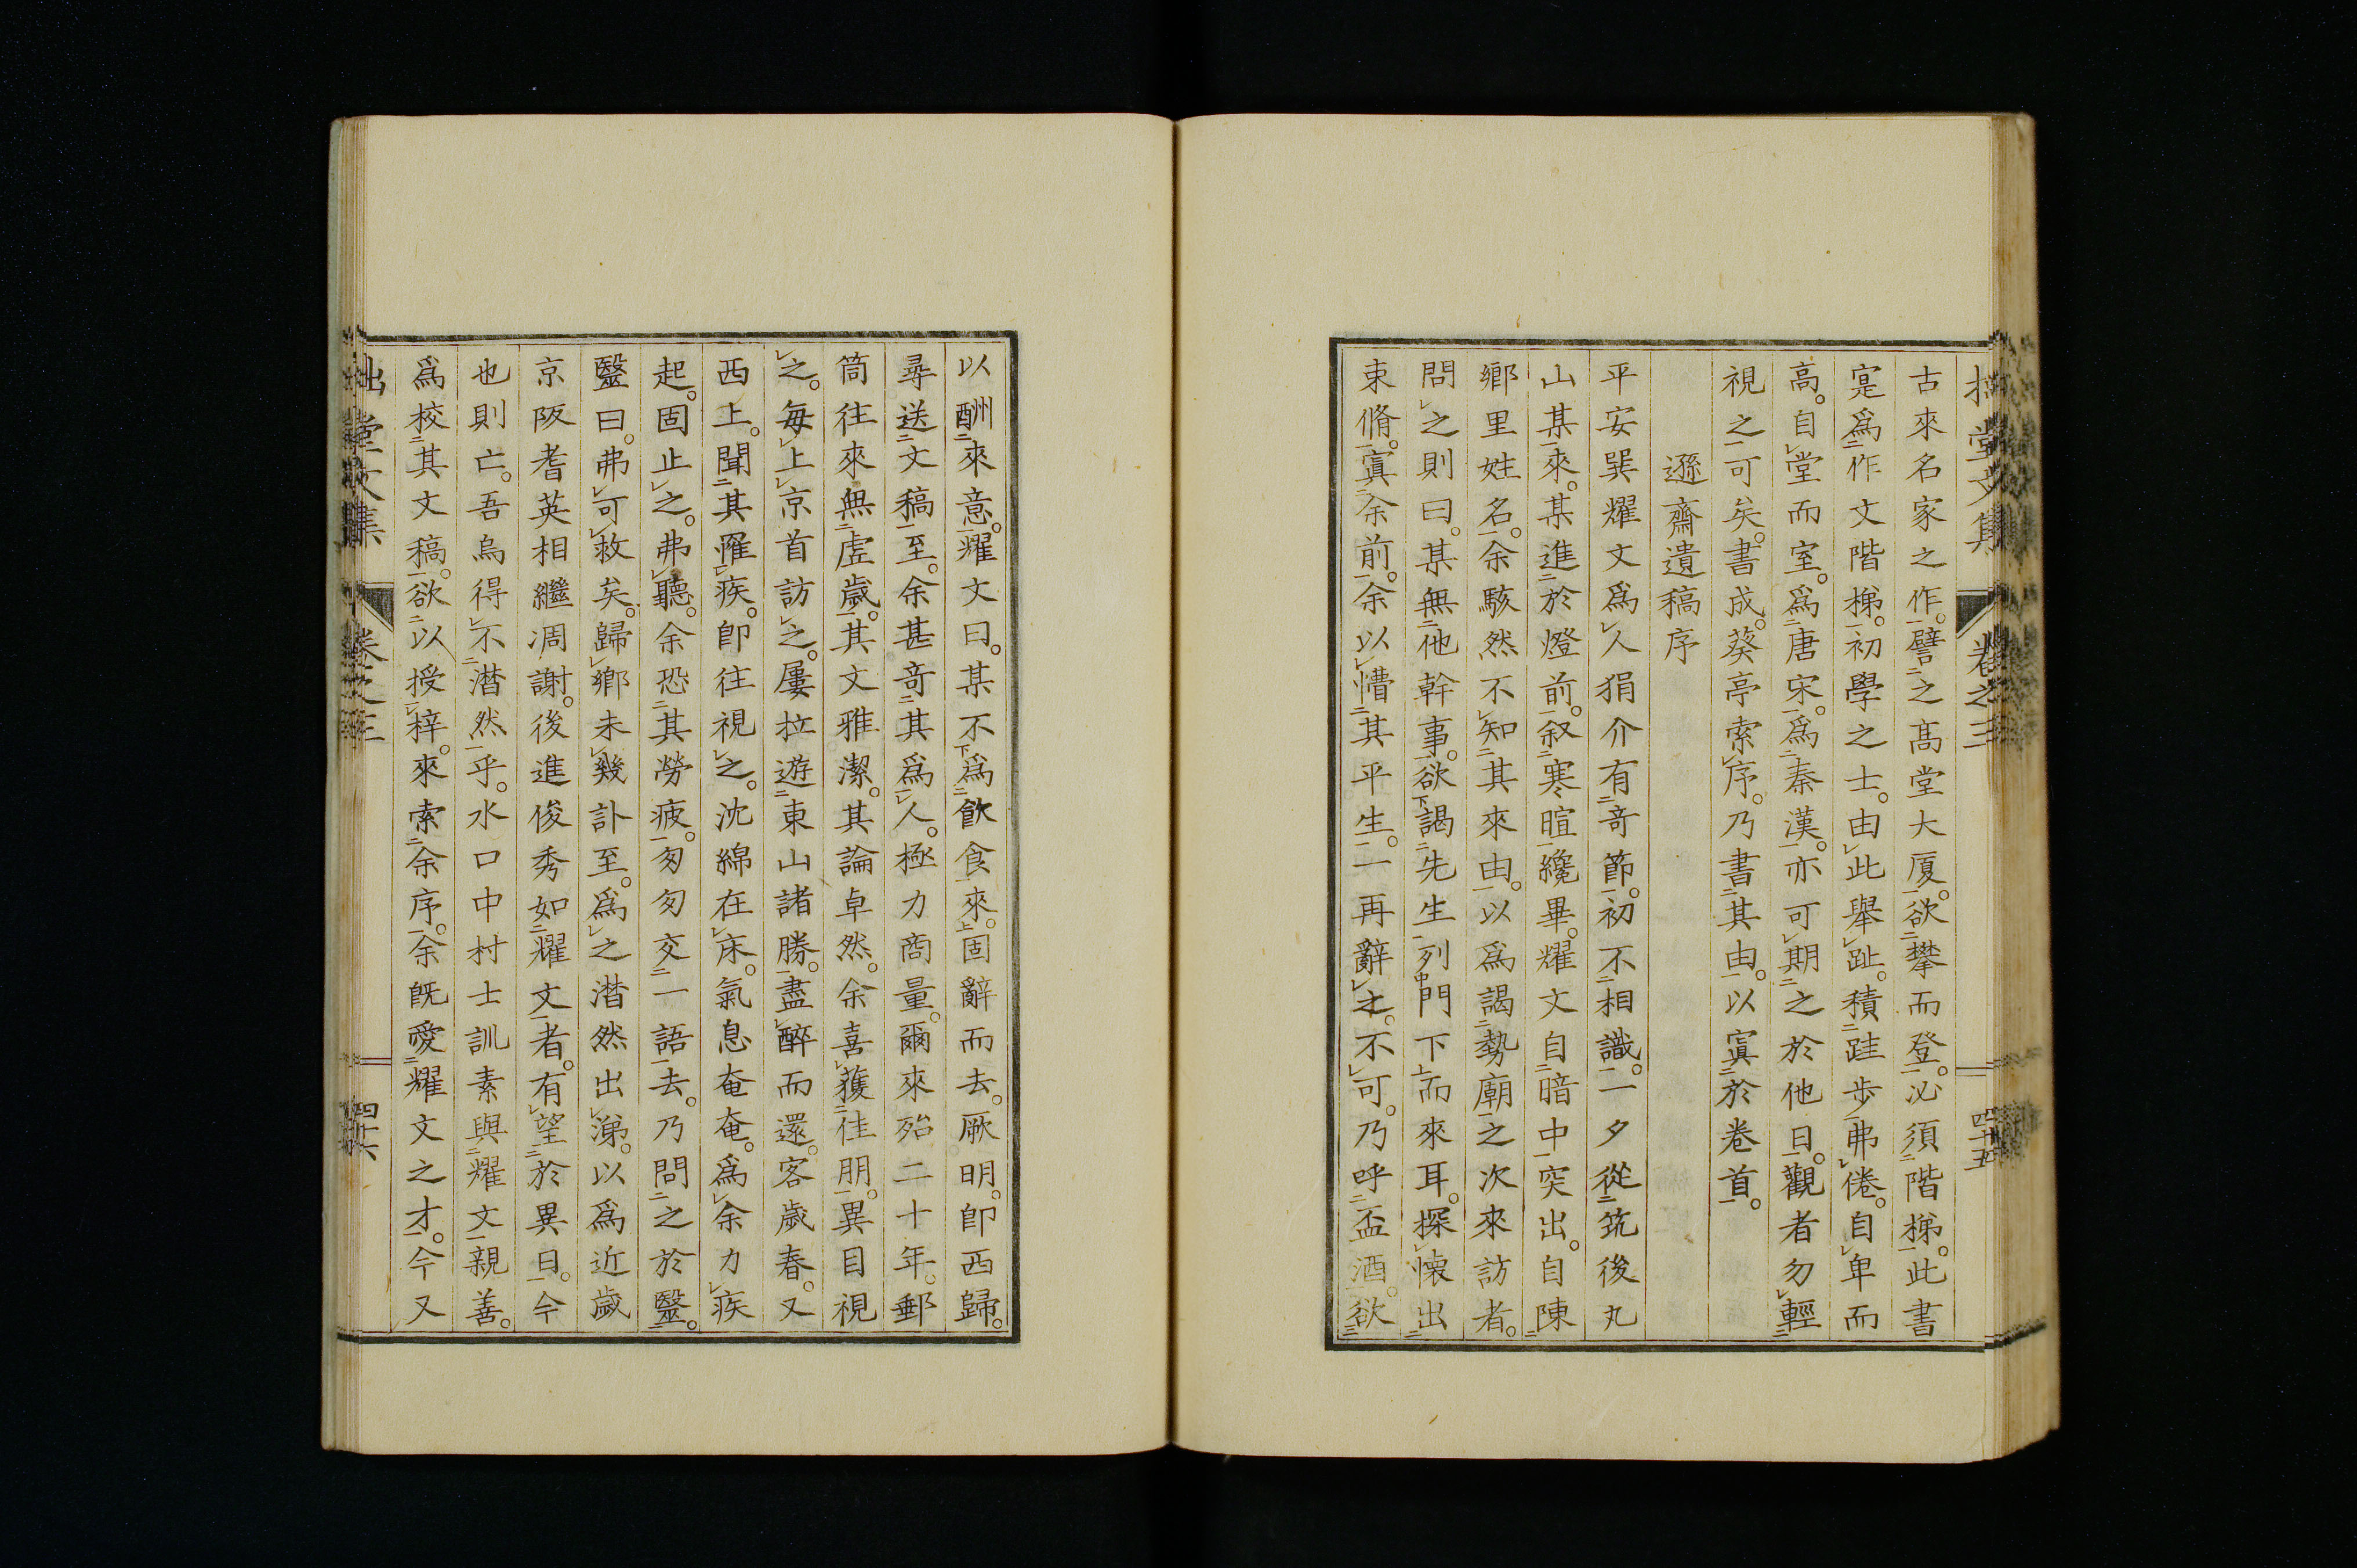 古來名家之作。譬之高堂大厦。欲攀而登。必須階梯。此書
寔爲作文階梯。初學之士。由此舉趾。積跬步弗倦。自卑而
高。自堂而室。爲唐宋。爲秦漢。亦可期之於他日。觀者勿輕
視之可矣。書成。葵亭索序。乃書其由。以寘於卷首。
遜齋遺稿序
平安巽耀文爲人狷介有竒節。初不相識。一夕從筑後丸
山某來。某進於燈前。叙寒暄纔畢。耀文自暗中突出。自陳
鄉里姓名。余駭然不知其來由。以爲謁勢廟之次來訪者。
問之則曰。某無他幹事。欲謁先生列門下而來耳。探懷出
束脩。寘余前。余以慒其平生。一再辭之。不可。乃呼盃酒。欲
以酬來意。耀文曰。某不爲飮食來。固辭而去。厥明。卽西歸。
尋送文稿至。余甚竒其爲人。極力商量。爾來殆二十年。郵
筒往來無虛歲。其文雅潔。其論卓然。余喜獲佳朋。異目視
之。每上京首訪之。屢拉遊東山諸勝。盡醉而還。客歲春。又
西上。聞其罹疾。卽往視之。沈綿在床。氣息奄奄。爲余力疾
起。固止之。弗聽。余恐其勞疲。匆匆交一語去。乃問之於毉。
毉曰。弗可救矣。歸鄉未幾訃至。爲之潸然出涕。以爲近歲
京阪耆英相繼凋謝。後進俊秀如耀文者。有望於異日。今
也則亡。吾烏得不潸然乎。水口中村士訓素與耀文親善。
爲校其文稿。欲以授梓。來索余序。余旣愛耀文之才。今又
堂文集
卷之三
四十六
堂文集
卷之三
四十五